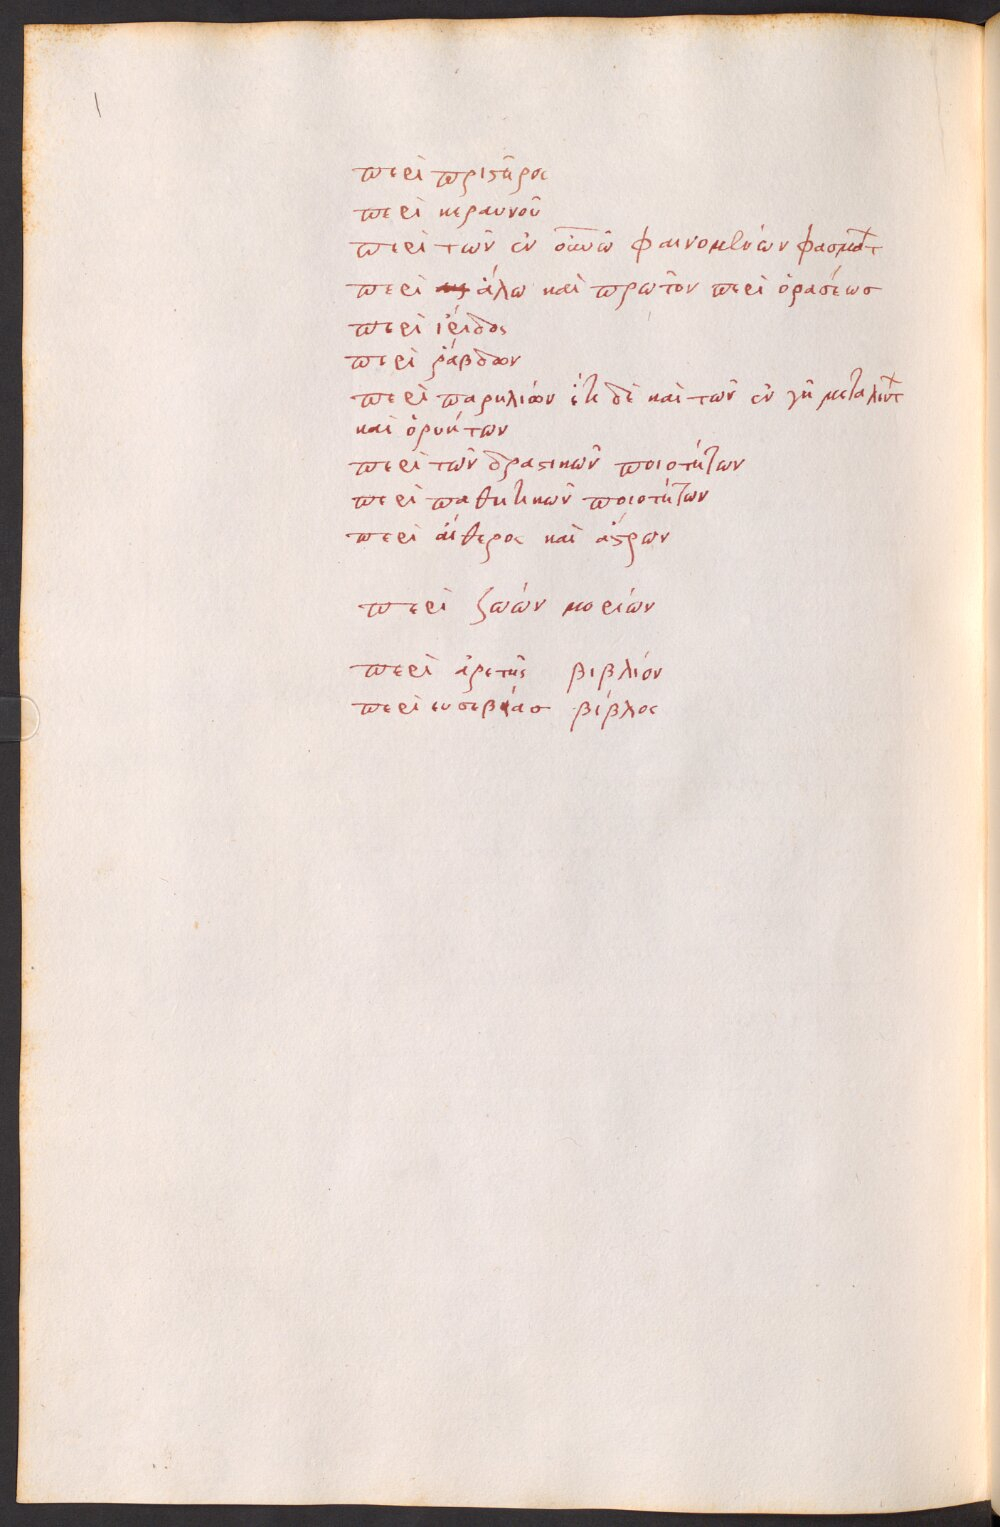 περὶ πριστῆρος
περὶ κεραυνοῦ
περὶ τῶν ἐν οὐνῶ φαινομένων φασμάτ
περὶ ἅλω καὶ πρῶτον περὶ ὁράσεωσ
περὶ ἴριδος
περὶ ῥάβδων
περὶ παρηλίων ἔτι δὲ καὶ τῶν ἐν γῆ
καὶ ὀρυκτων
περὶ τῶν δραστικῶν ποιοτήτων
περὶ παθητικῶν ποιοτήτων
περὶ αἰθερος καὶ ἄστρων
περὶ ζωών μορίων
περὶ ἀρετῆς βιβλίον
περὶ ευσεβείασ βίβλος